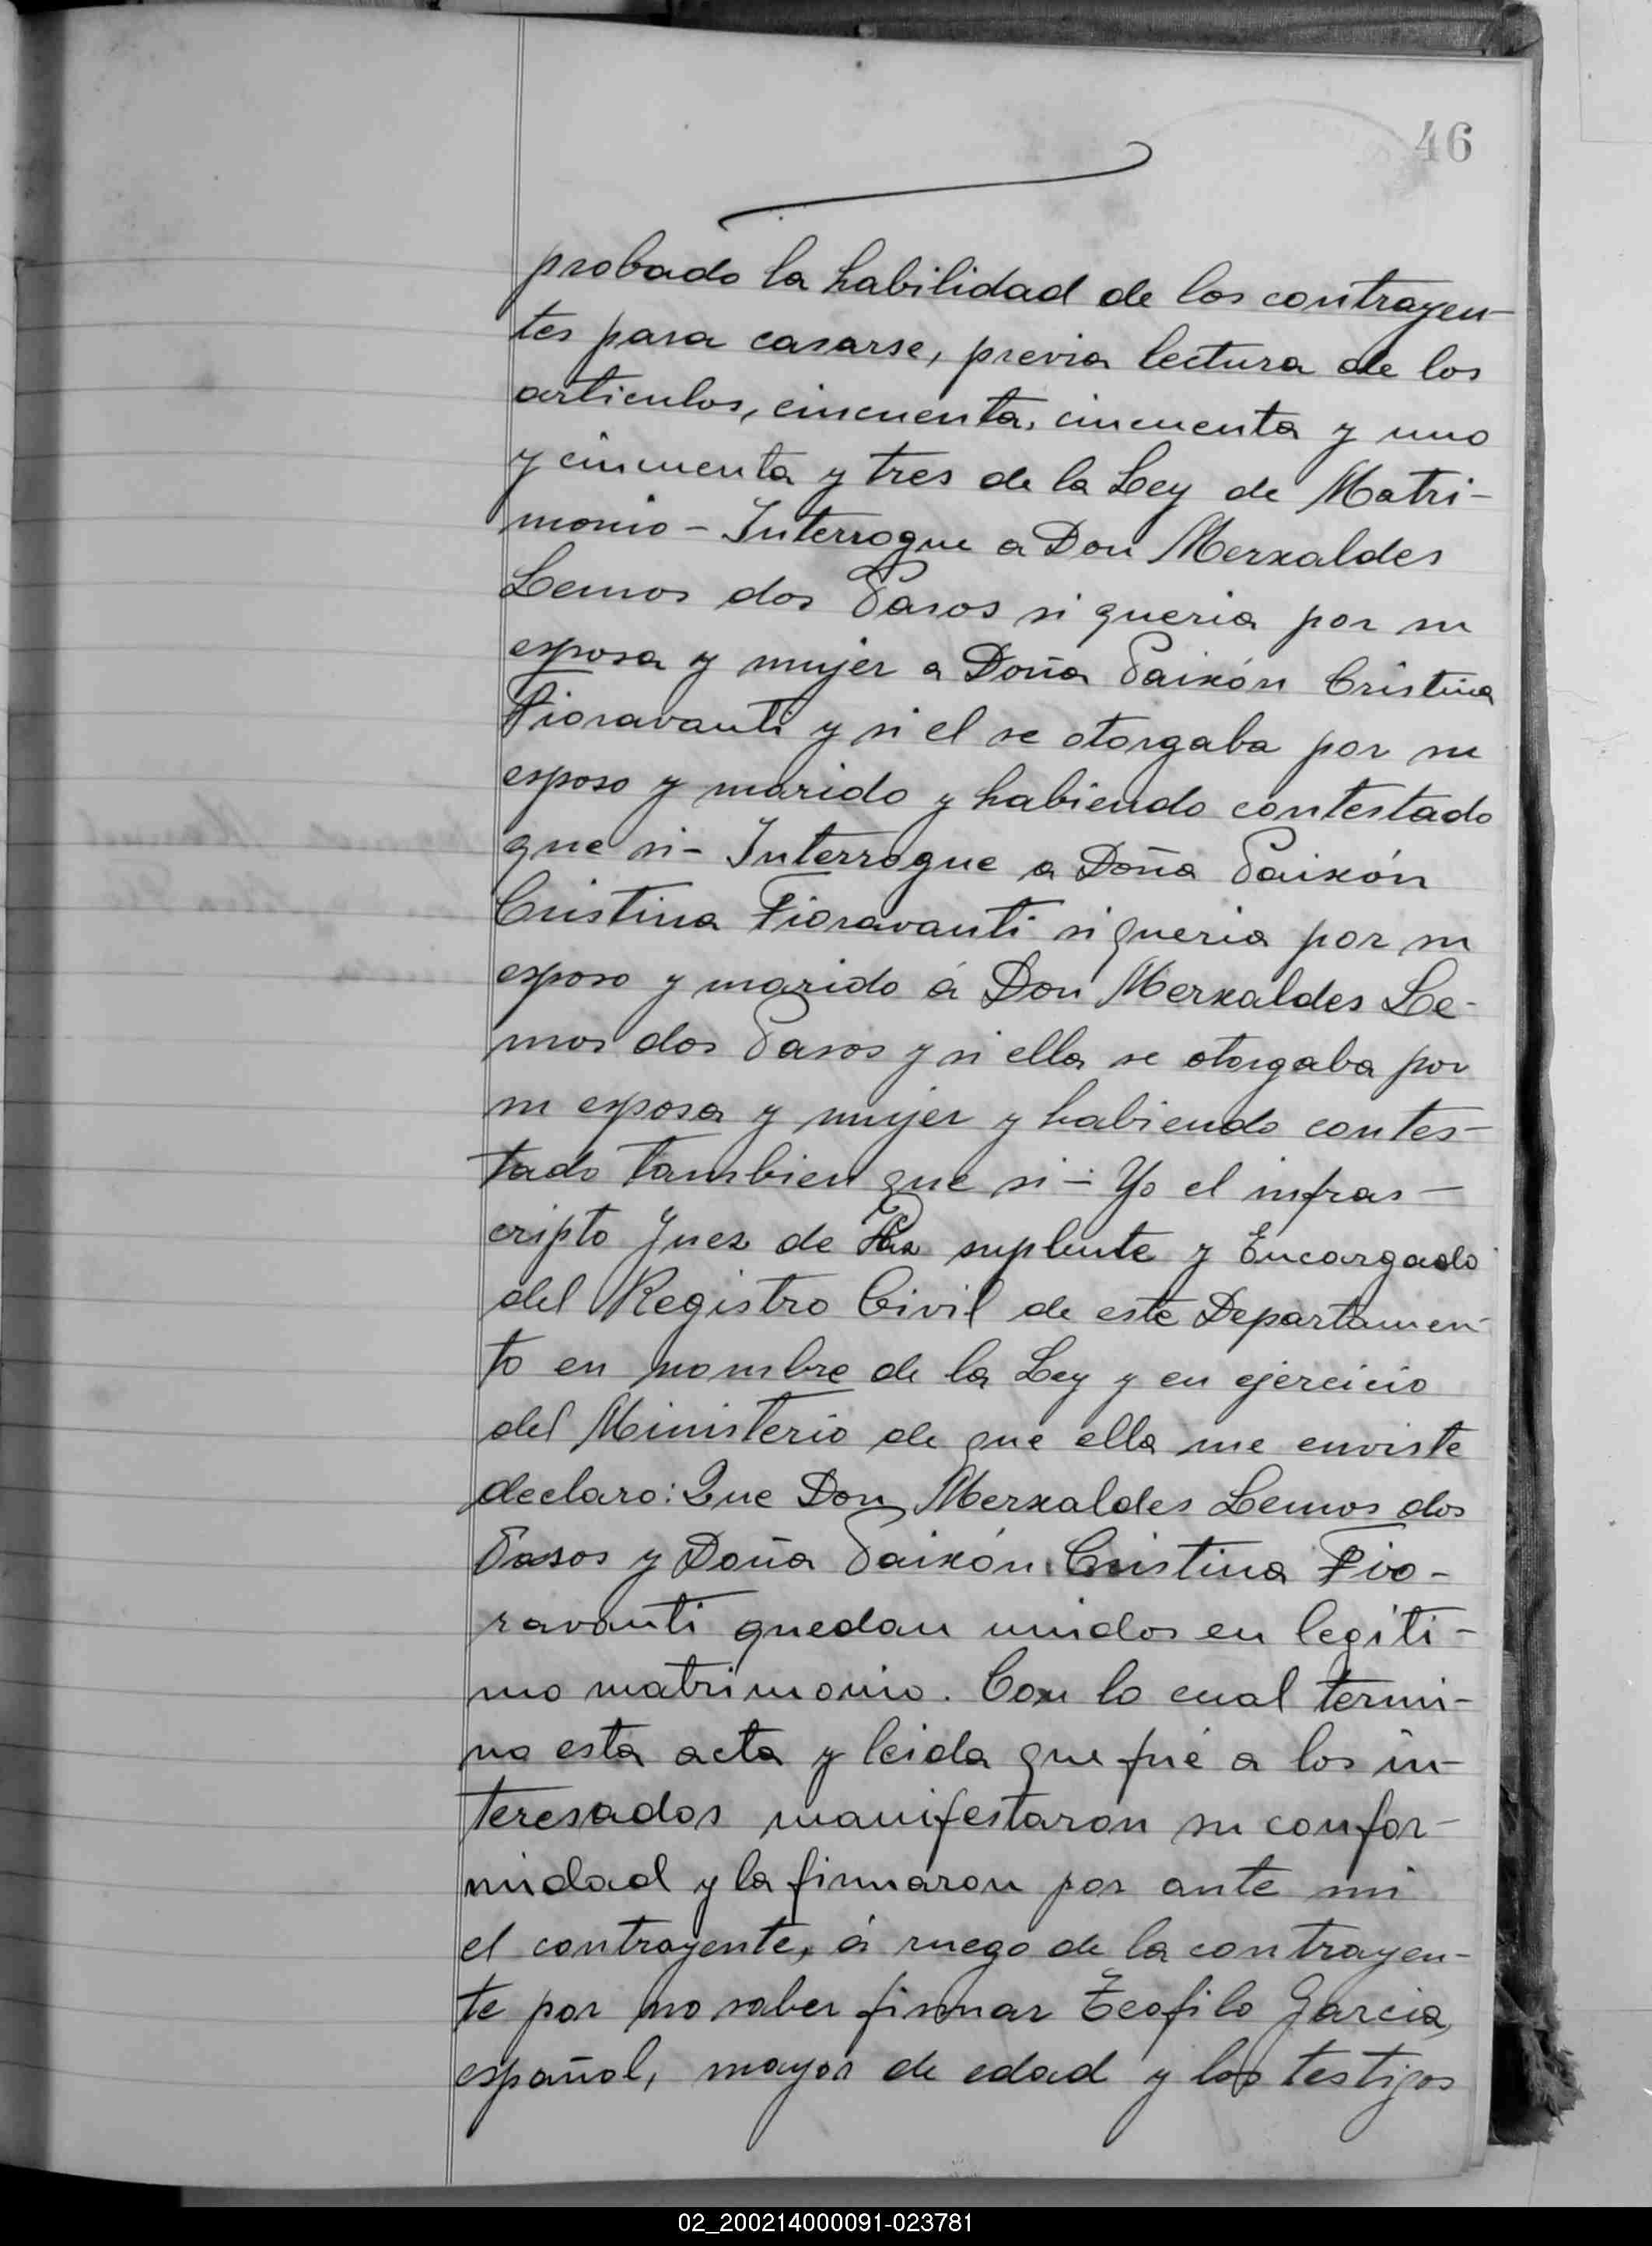 46
probado la habilidad de los contrayen-
tes para casarse, previa lectura de los
articulos, cincuenta, cincuenta y uno
y cincuenta y tres de la Ley de Matri-
monio - Interrogue a Don Merxaldes
Lemos dos Pasos si queria por su
esposa y mujer a Doña Paixón Cristina
Fioravanti y si el se otorgaba por su
esposo y marido y habiendo contestado
que si - Interrogue a Doña Paixón
Cristina Fioravanti si queria por su
esposo y marido á Don Merxaldes Le-
mos dos Pasos y si ella se otorgaba por
su esposa y mujer y habiendo contes-
tado tambien que si - Yo el infras-
cripto Juez de Paz suplente y Encargado
del Registro Civil de este Departamen-
to en nombre de la Ley y en ejercicio
del Ministerio de que ella me enviste
declaro: Que Don Merxaldes Lemos dos
Pasos y Doña Paixón Cristina Fio-
ravanti quedan unidos en legiti-
mo matrimonio. Con lo cual termi-
na esta acta y leida que fué a los in-
teresados manifestaron su confor-
midad y la firmaron por ante mi
el contrayente, á ruego de la contrayen-
te por no saber firmar Teofilo Garcia,
español, mayor de edad y los testigos
02_200214000091-023781